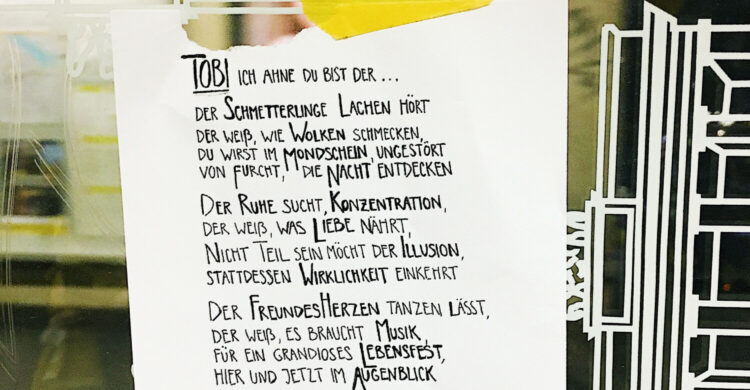 TOBI ICH AHNE DU BIST DER ...
DER SCHMETTERLINGE LACHEN HÖRT
DER WEIß, WIE WOLKEN SCHMECKEN,
DU WIRST IM MONDSCHEIN, UNGESTÖRT
VON FURCHT, DIE NACHT ENTDECKEN
DER RUHE SUCHT, KONZENTRATION,
DER WEIß, WAS LIEBE NÄHRT,
NICHT TEIL SEIN MÖCHT DER ILLUSION,
STATTDESSEN WIRKLICHKEIT EINKEHRT
DER FREUNDESHERZEN TANZEN LÄSST,
DER WEIß, ES BRAUCHT MUSIK,
FÜR EIN GRANDIOSES LEBENSFEST,
HIER UND JETZT IM AUGENBLICK